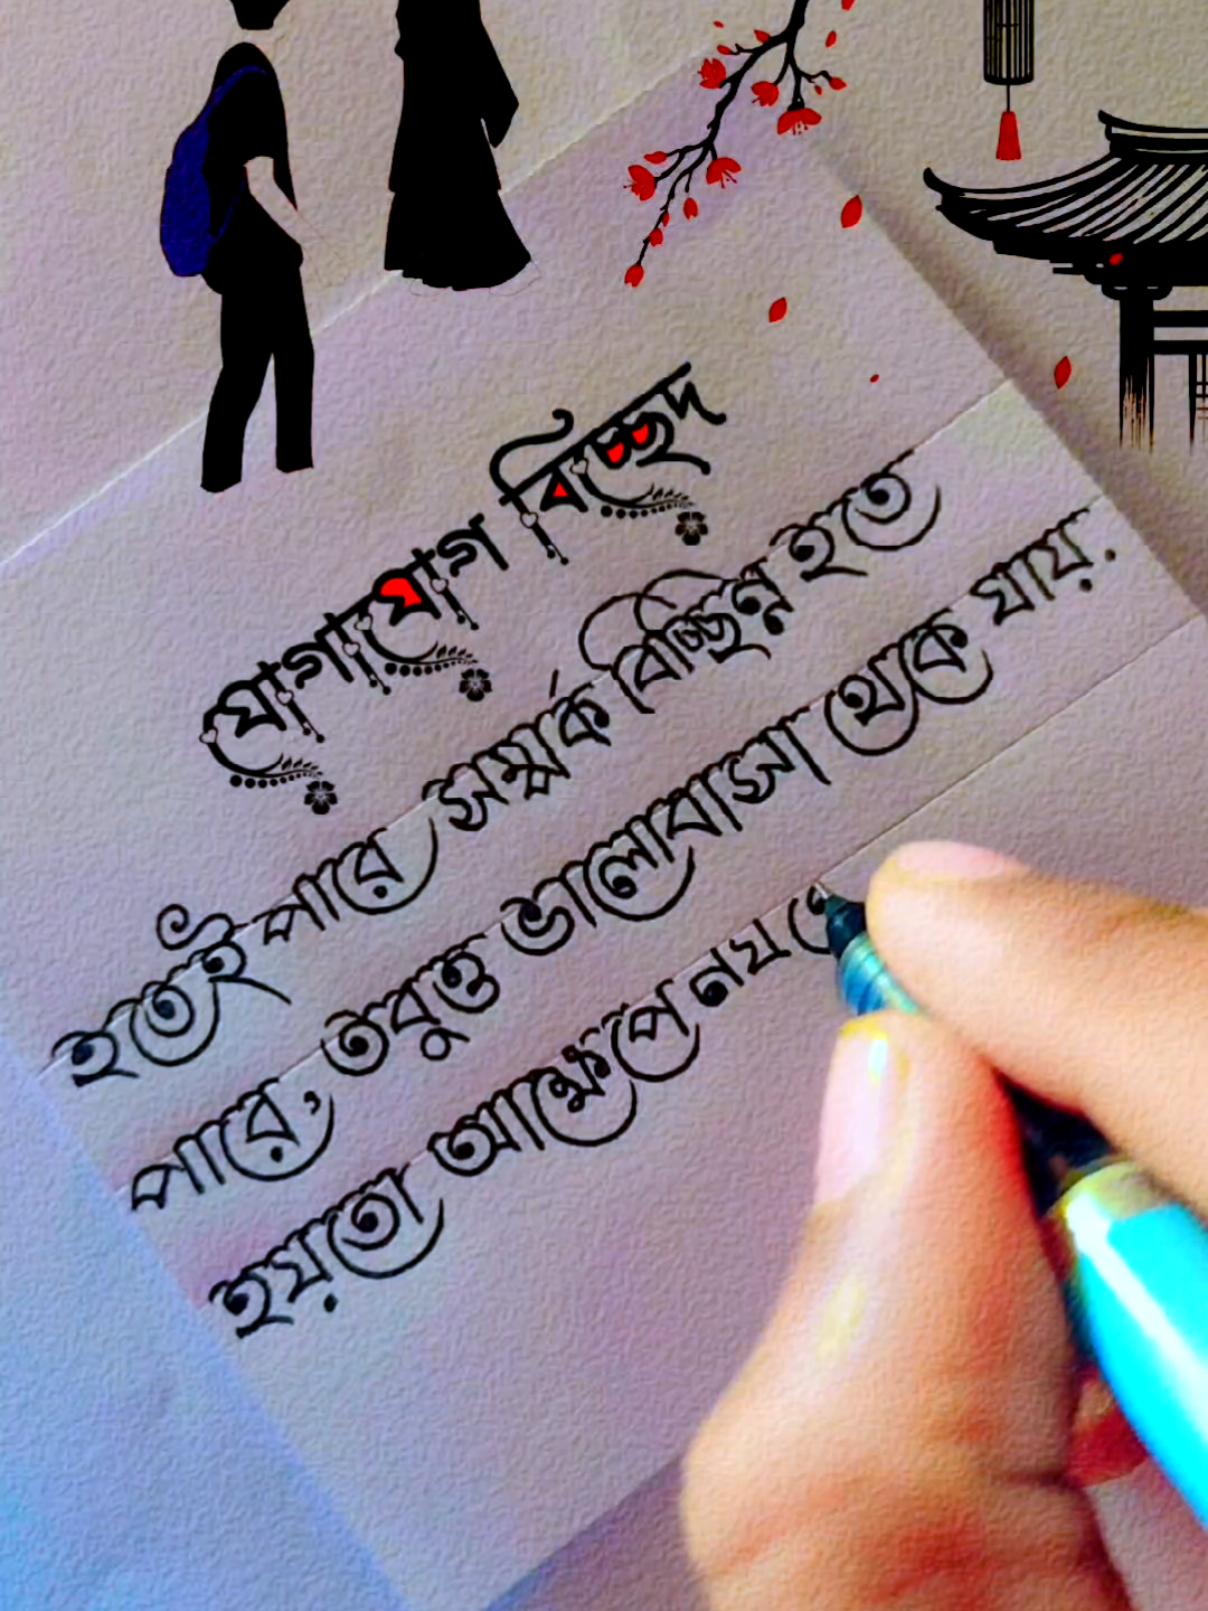 যোগাযোগ বিচ্ছেদ
হতেই পারে সম্পর্ক বিচ্ছিন্ন হতে
পারে, তবুও ভালোবাসা থেকে যায়.
হয়তো আক্ষেপে নয়